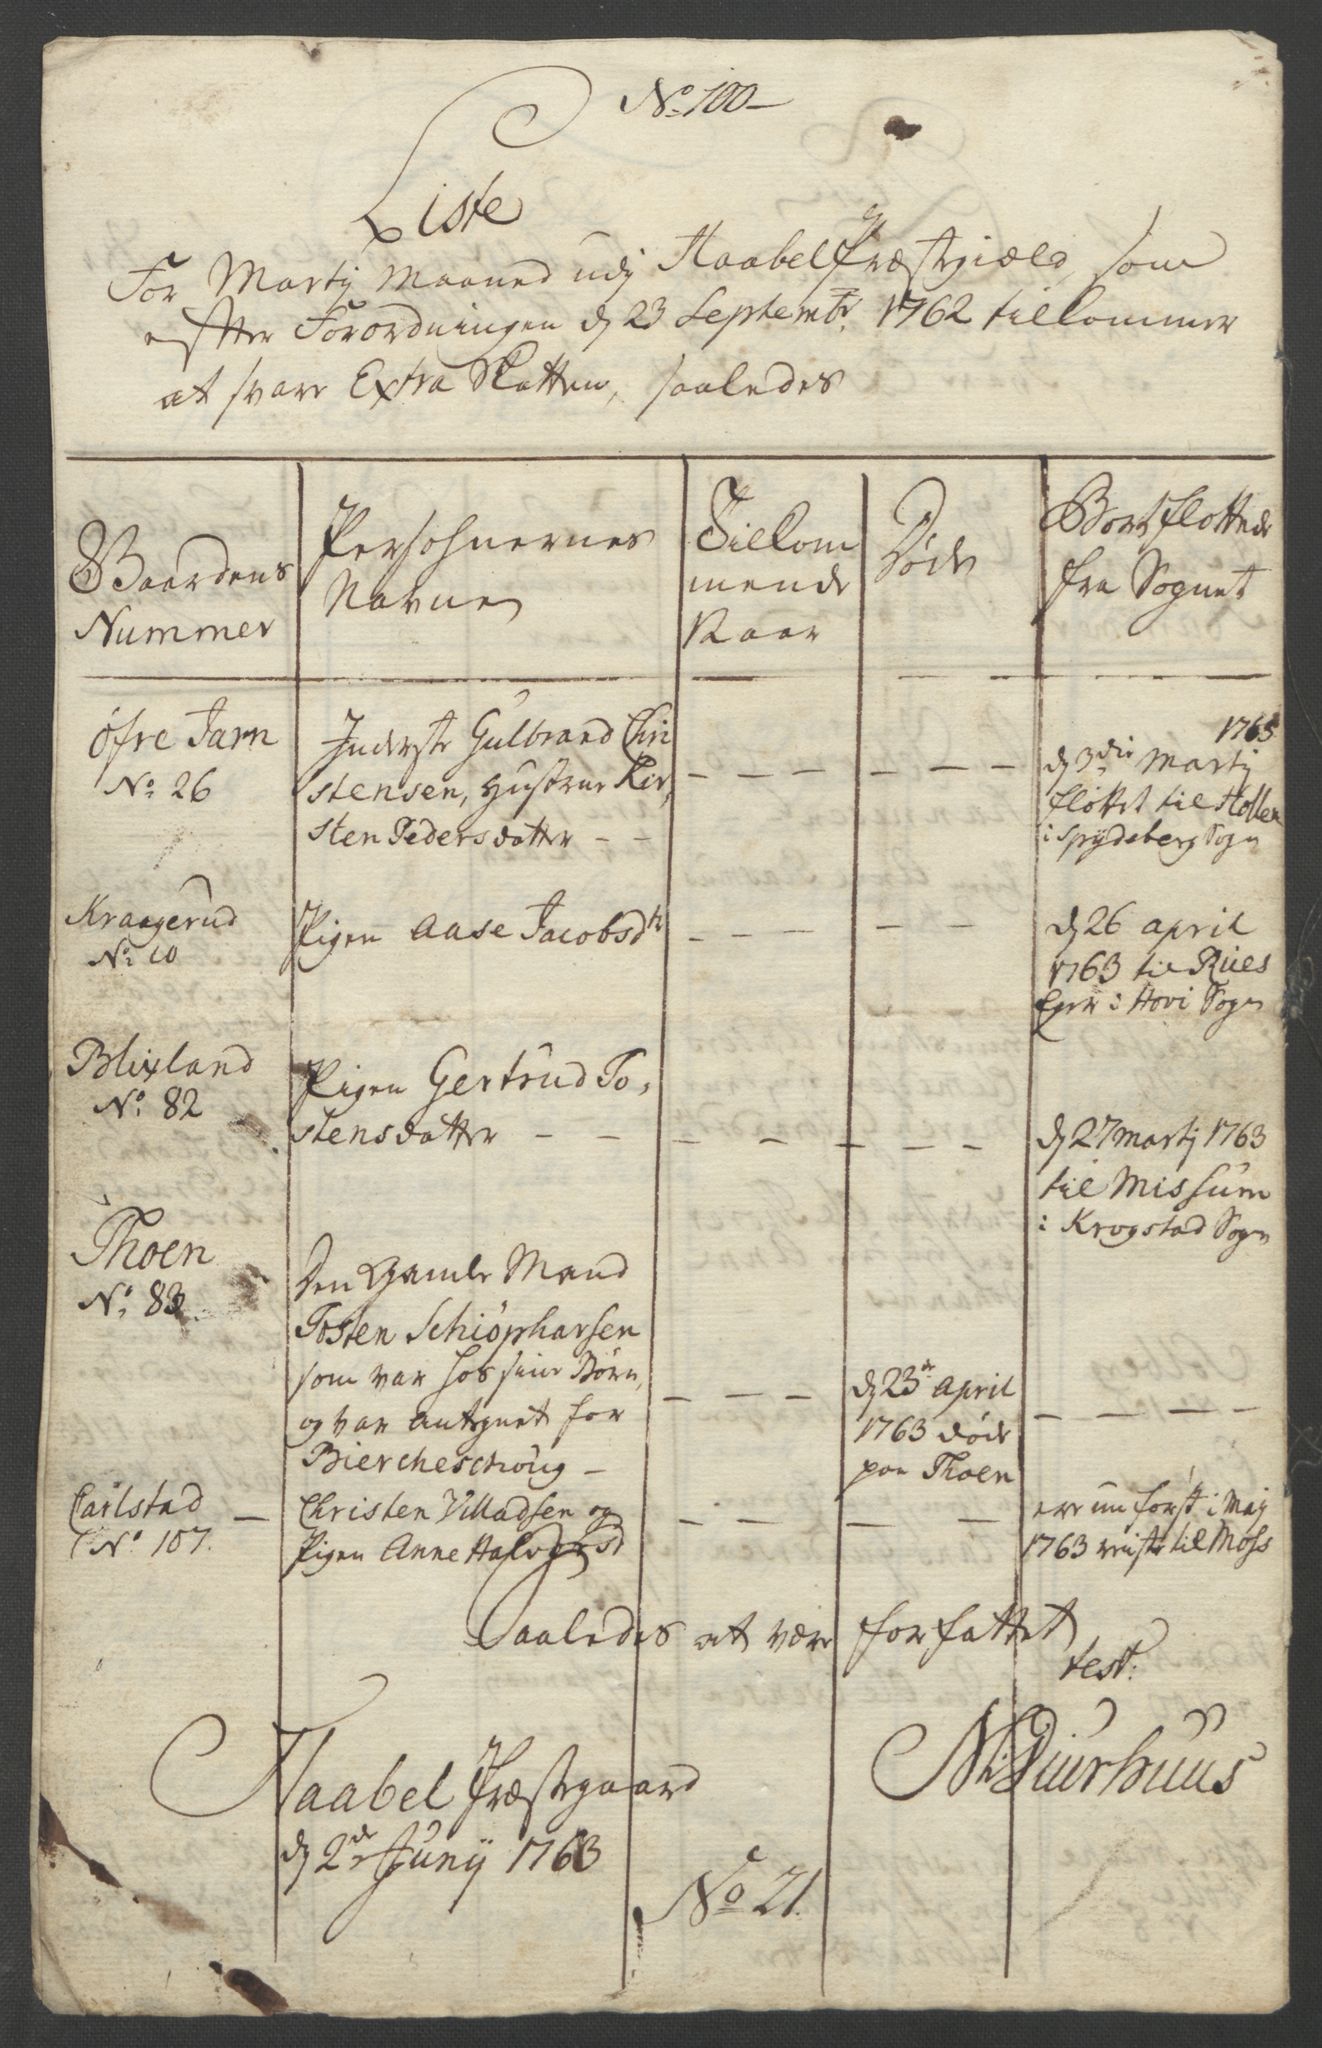 No 100
Liste
For Martij Maaned udj Haabel Præstegield, som
efter Forordningen d 23 Septembr. 1762 tilkommer
at svare Extra Skatten, saaledes
Gaardens
Nummer
Persohnernes
Navne
Tilkom
mende
Kaar
Døde
Bortflottede
fra Sognet
Øfre Jarn
No 26
Inderste Gulbrand Chri
stensen, Hustrue Kir,
sten Pedersdatter - -
1763
d 3die Martij
fløttet til Hollen
i Spydeberg Sogn
Kraagerud
No 10
Pigen Aase Jacobsdtr
d 26 april
1763 til
i Hovi Sogn
Blixland
No 82
Pigen Gertrud To,
stensdatter - -
d 27 martij 1763
til Missum
i Krogstad Sogn
Thoen
No 83
Den Gamle Mand
Tosten Schiøpharsen
som var hos sine Børn,
og var antegnet for
Biercheschoug -
d 23de April
1763 døde
paa Thoen
Carlstad
No 107.
Christen Villadsen og
Pigen Anne Halvorsd
ere nu først i Maij
1763 reiste til Moss
Saaledes at være forfattet
test:
Haabel Præstegaard
d 2de Junij 1763
N: Diurhuus
No 21.